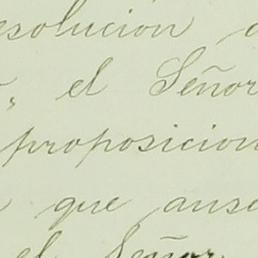 esolucion
" el Señor
proposicion
que anse
el Señor